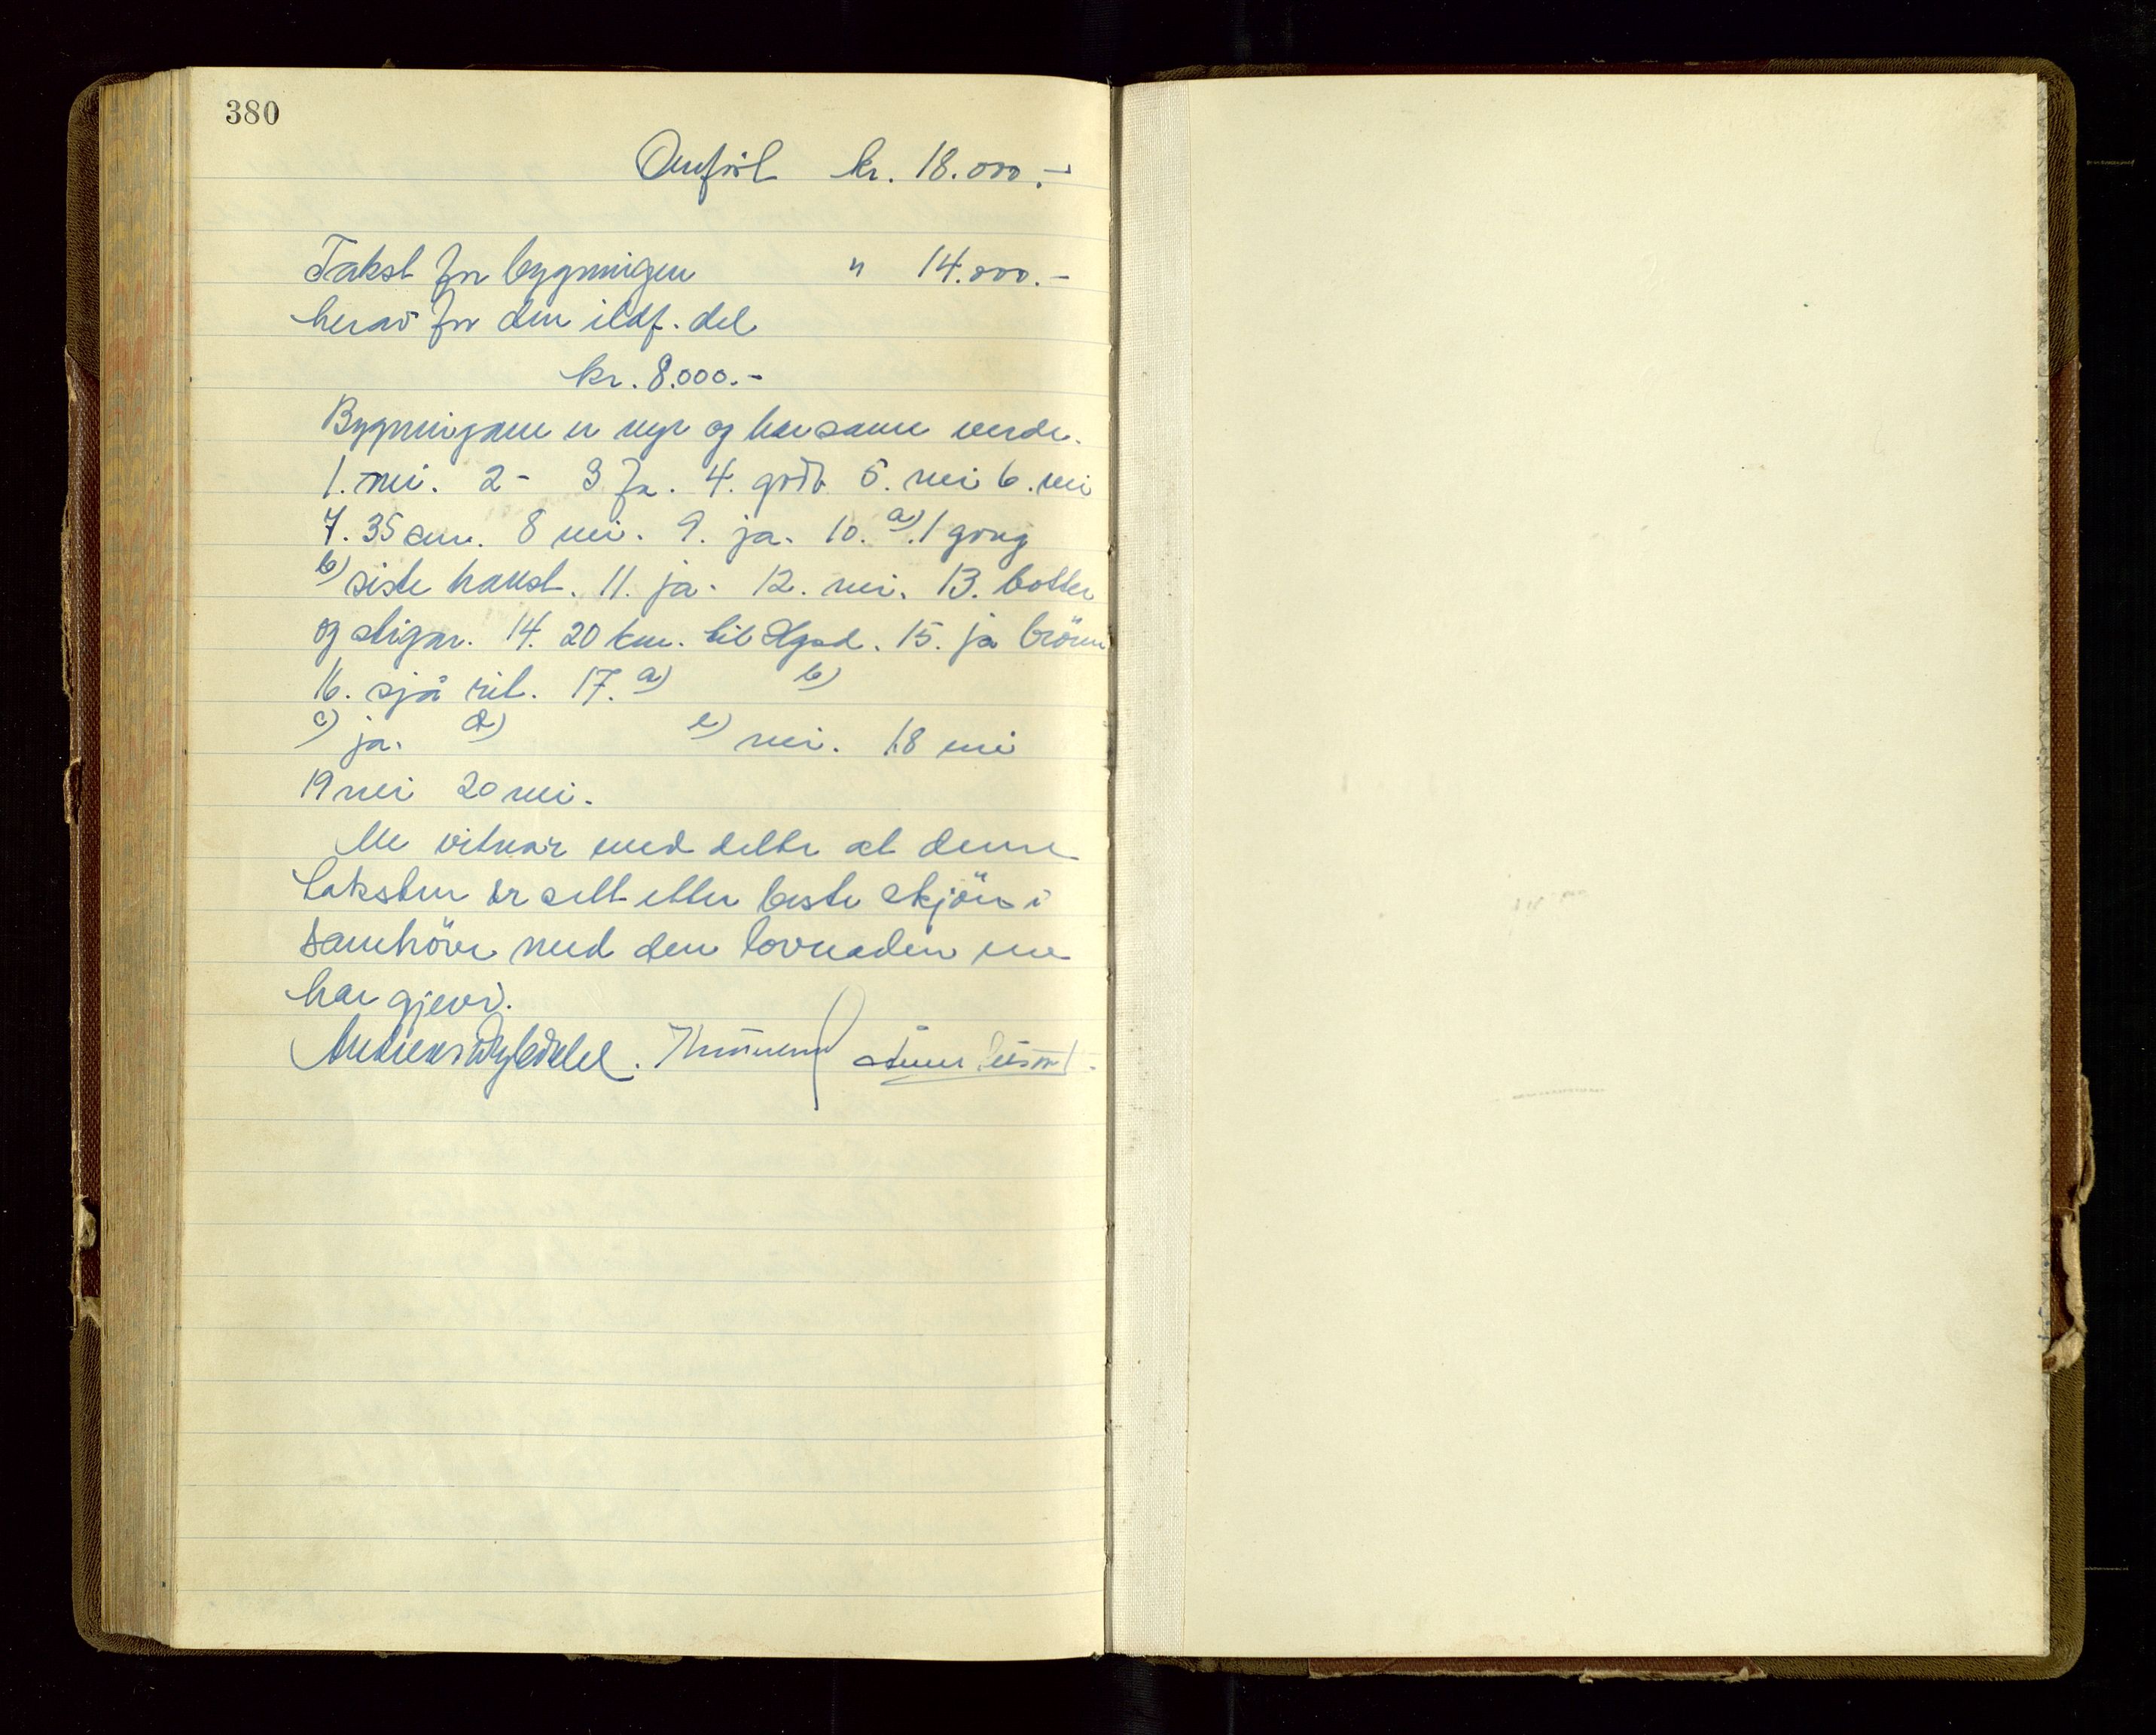 380
Omført kr. 18.000.-
Takst for bygningen " 14.000.-
herav for den ildf. del
kr. 8.000.-
Bygningane er nye og har same verde.
1. nei. 2 - 3 ja. 4. godt 5. nei 6. nei
7. 35 cm. 8 nei. 9. ja. 10. a) 1 gong
b) siste haust. 11. ja. 12. nei. 13. bötter
og stigar. 14. 20 km. til Hgsd. 15. ja brönn
16. sjå rit. 17. a) b)
c) ja. d) e) nei. 18 nei
19 nei 20 nei.
Me vitnar med dette at denne
taksten er sett etter beste skjön i
samhöve med den lovnaden me
har gjevi.